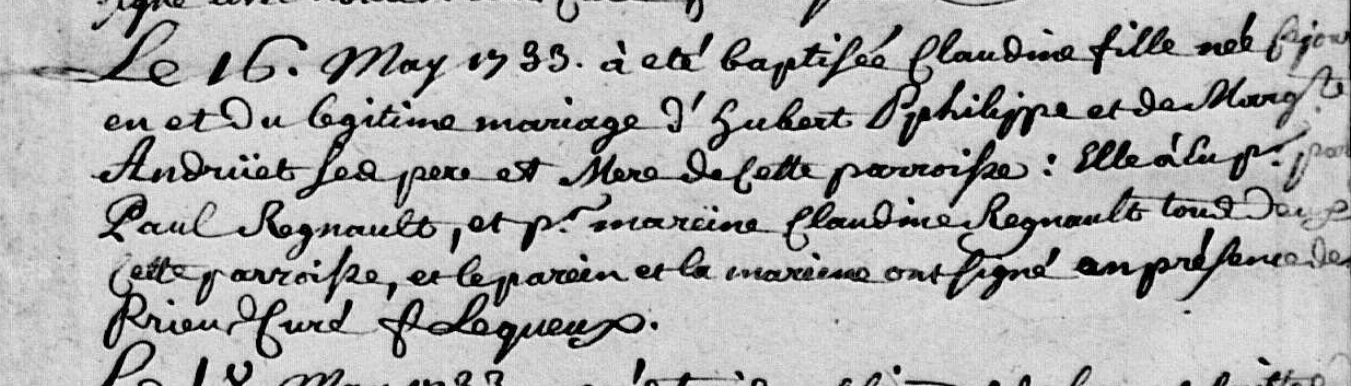 Le 16. May 1733. à eté baptisée Claudine fille neé
en et du legitime mariage d'hubert Pphilippe et de Marg.te
Andrüet ses pere et Mere de Cette parroisse : Elle à Eu p.r par
Paul Regnault, et p.r mareine Claudine Regnault tous deux
Cette parroisse, et le parein et la mareine ont signé en présence de
Prieur Curé f Lequeux.
Le May 1733